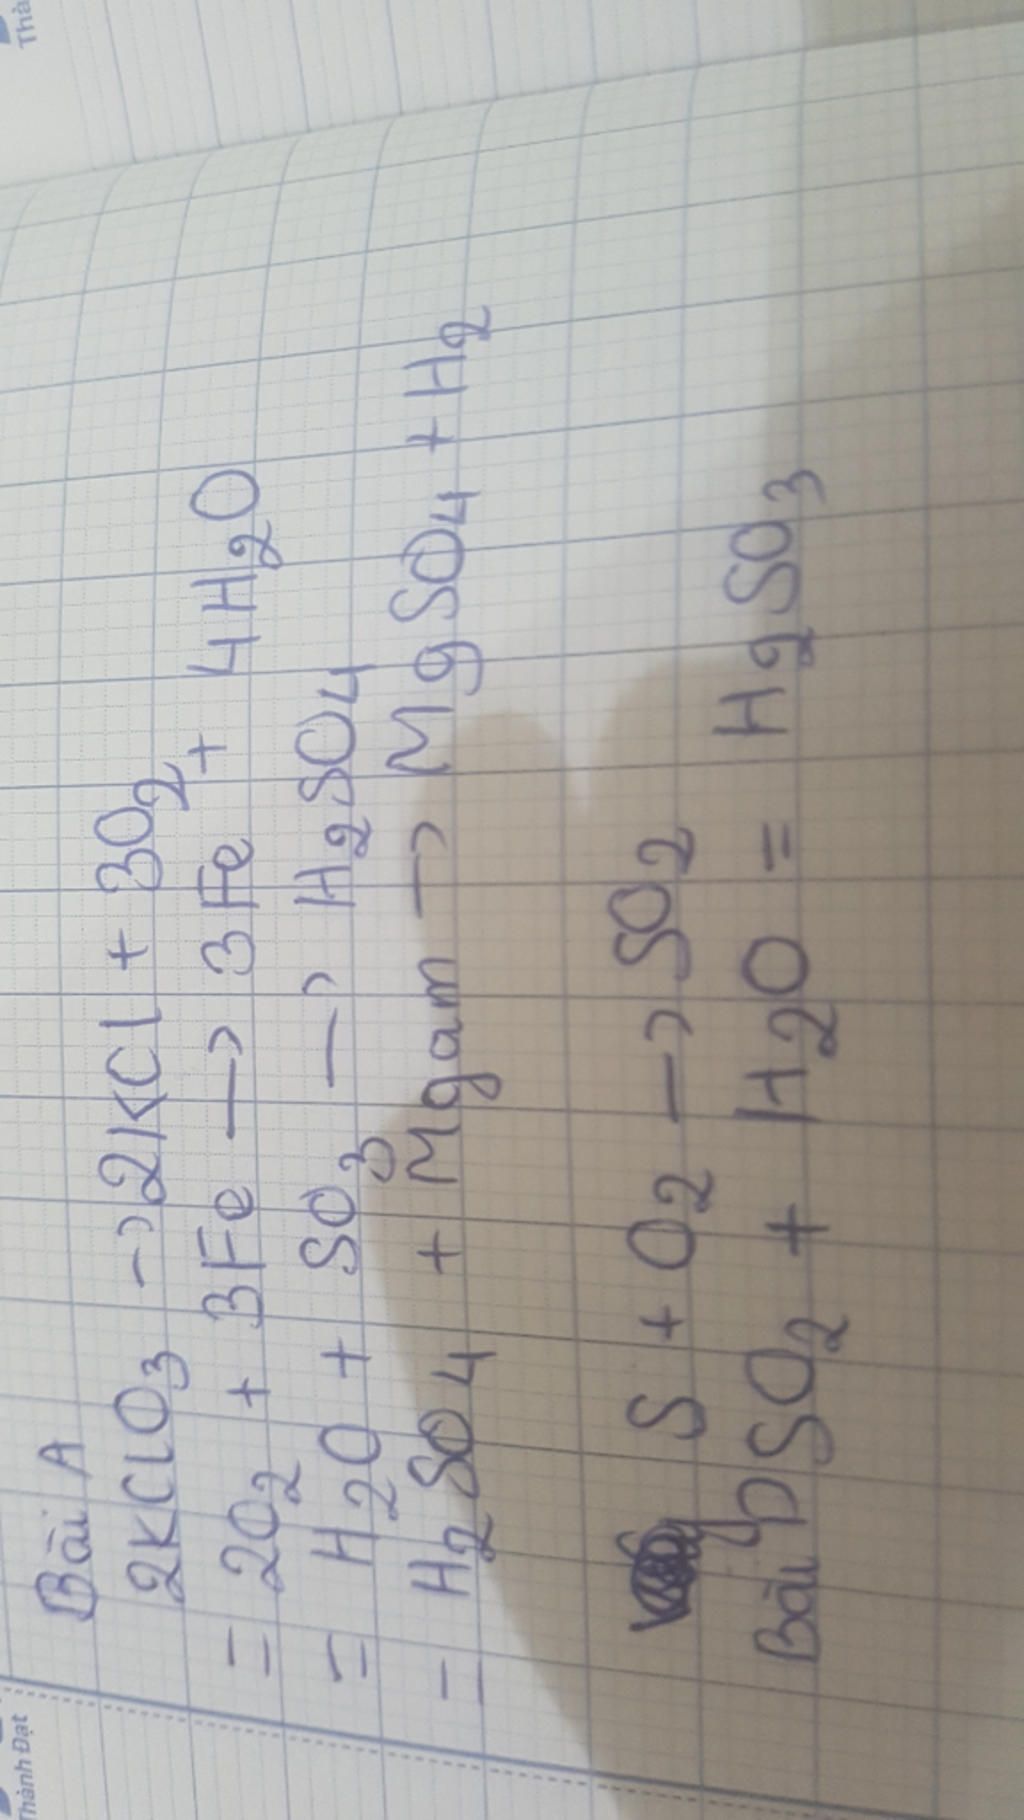 Thà
Bài A
2KClO3 → 2KCl + 3O2
= 2O2 + 3Fe → 3Fe + 4H2O
= H2O + SO3 → H2SO4
= H2SO4 + Mgam → MgSO4 + H2
S + O2 → SO2
Bài SO2 + H2O = H2SO3
Thành Đạt